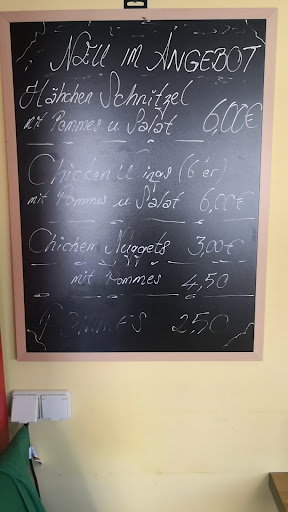 NEU IM ANGEBOT
Hähchen Schnitzel
mit Pommes u Salat 6,00€
Chicken Wings (6'er)
mit Pommes u Salat 6,00€
Chicken Nuggets 3,00€
mit Pommes 4,50
POMMES 2,50